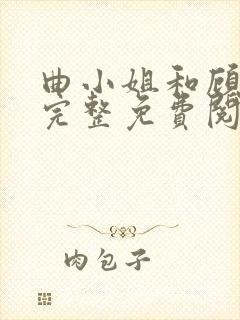 曲小姐和顾
完整免費閱
肉包子